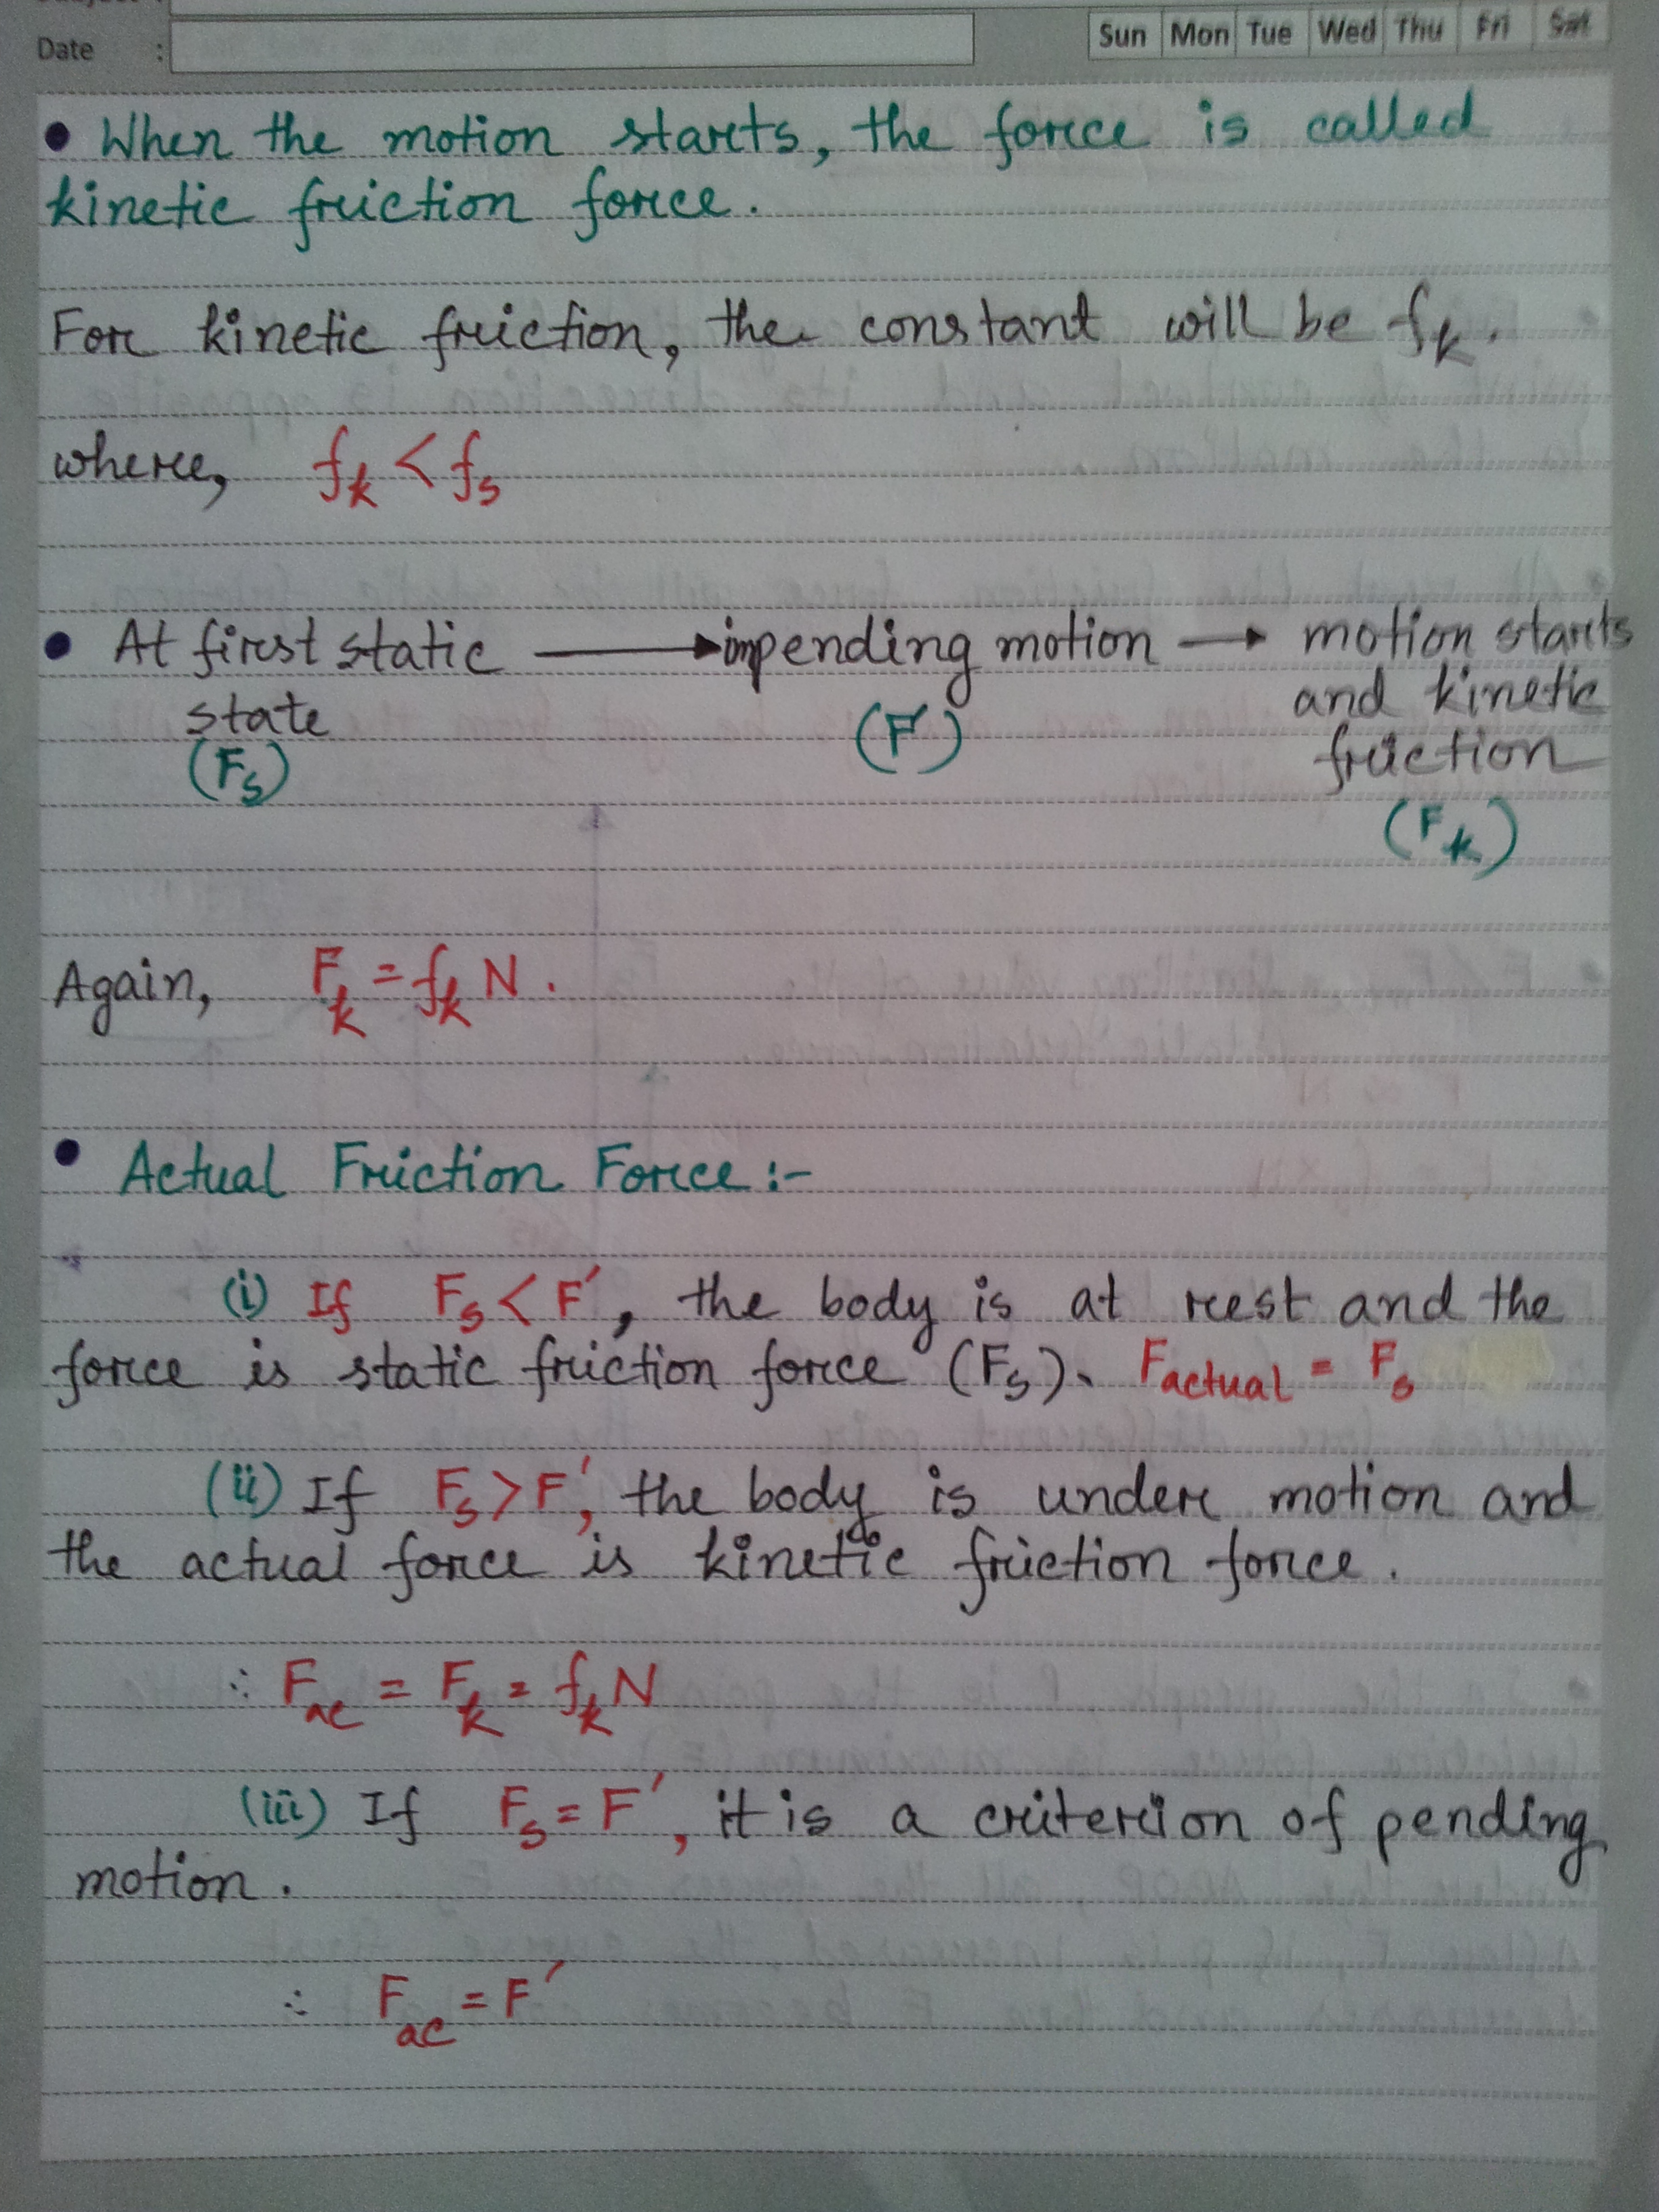 Date :
Sun Mon Tue Wed Thu Fri Sat
• When the motion starts, the force is called
kinetic friction force.
For kinetic friction, the constant will be fk.
where, fk < fs
• At first static → impending motion → motion starts
state
and kinetic
(Fs)
(F')
friction
(Fk)
Again, Fk = fk N.
• Actual Friction Force :-
(i) If Fs < F', the body is at rest and the
force is static friction force (Fs). Factual = Fs
(ii) If Fs > F', the body is under motion and
the actual force is kinetic friction force.
∴ Fac = Fk = fk N
(iii) If Fs = F', it is a criterion of pending
motion.
∴ Fac = F'